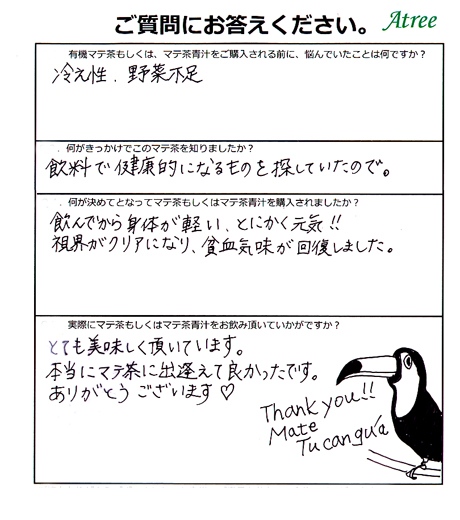 ご質問にお答えください。 Atree
有機マテ茶もしくは、マテ茶青汁をご購入される前に、悩んでいたことは何ですか？
冷え性．野菜不足
．何がきっかけでこのマテ茶を知りましたか？
飲料で健康的になるものを探していたので。
．何が決めてとなってマテ茶もしくはマテ茶青汁を購入されましたか？
飲んでから身体が軽い、とにかく元気！！
視界がクリアになり、貧血気味が回復しました。
実際にマテ茶もしくはマテ茶青汁をお飲み頂いていかがですか？
とても美味しく頂いています。
本当にマテ茶に出逢えて良かったです。
ありがとうございます♡
Thank you!!
Mate
Tucanguá